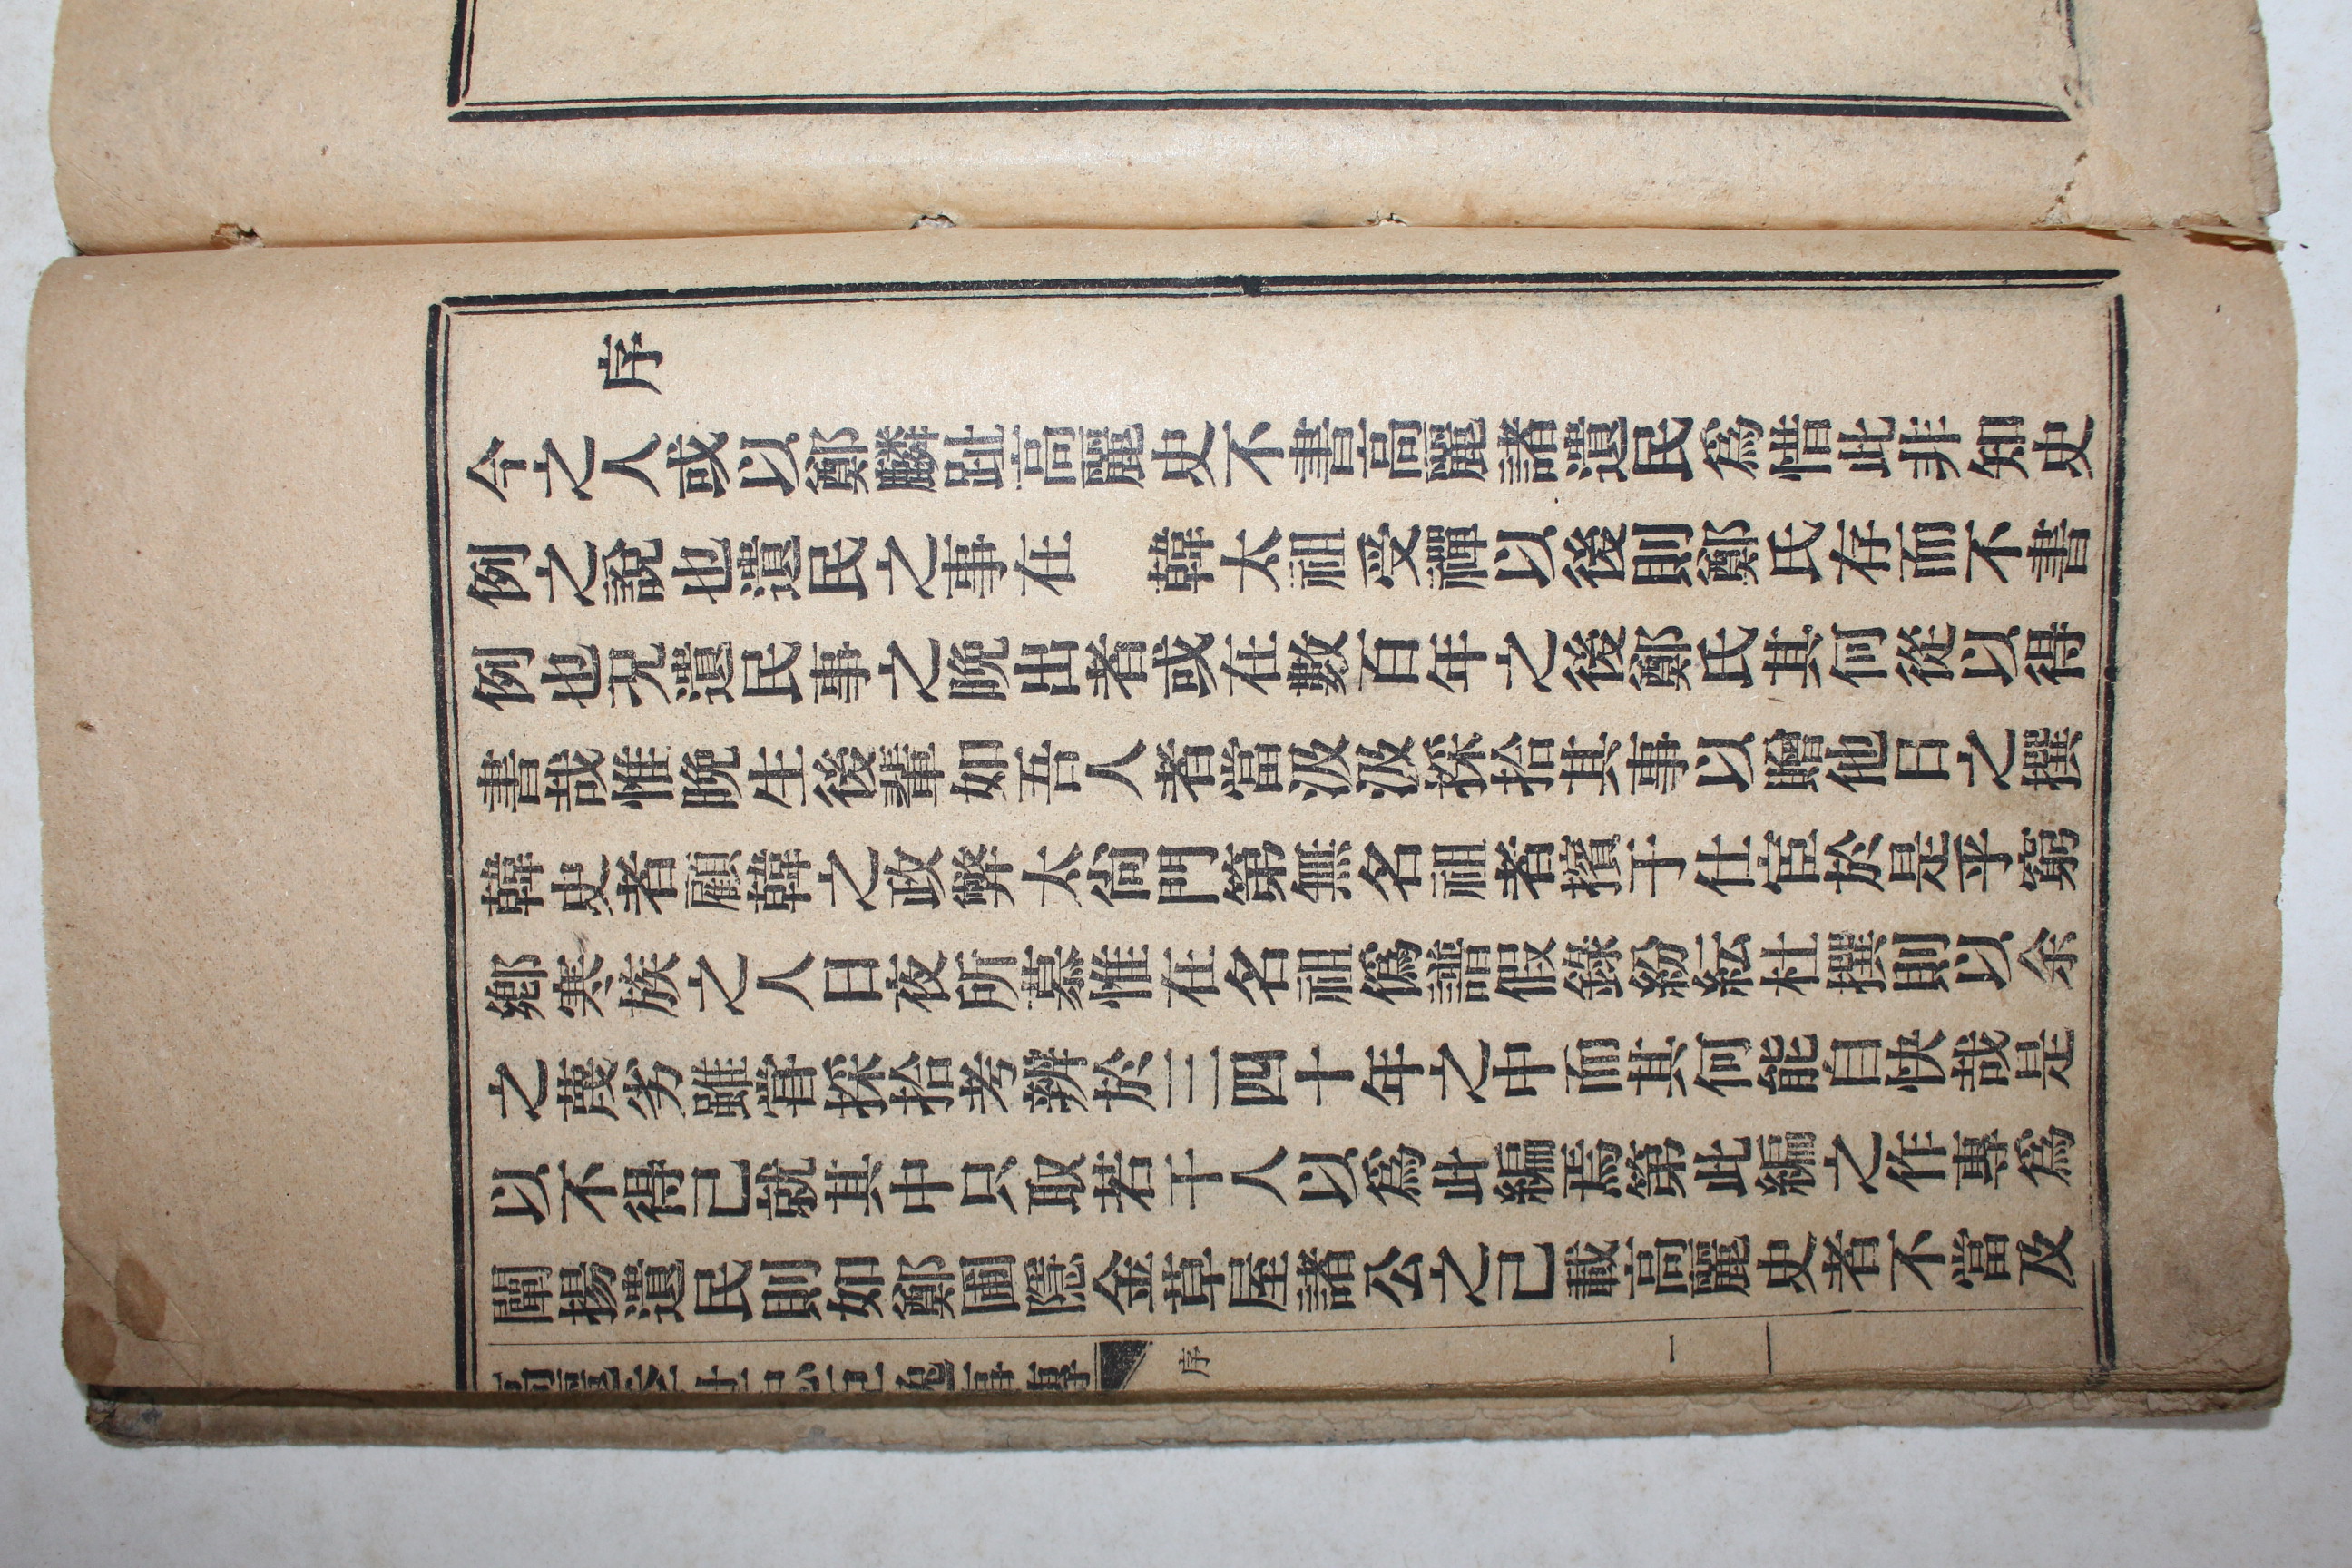 序
今之人或以鄭麟趾高麗史不書高麗諸遺民爲惜此非知史
例之說也遺民之事在　韓太祖受禪以後則鄭氏存而不書
例也况遺民事之晩出者或在數百年之後鄭氏其何從以得
書哉惟晩生後輩如吾人者當汲汲採拾其事以贍他日之撰
韓史者顧韓之政弊太尙門第無名祖者擯于仕宦於是乎窮
鄕寒族之人日夜所慕惟在名祖僞譜假錄紛紜杜撰則以余
之蔑劣雖甞採拾考辨於三四十年之中而其何能自快哉是
以不得已就其中只取若干人以爲此編焉第此編之作專爲
闡揚遺民則如鄭圃隱金草屋諸公之已載高麗史者不當及
序
一